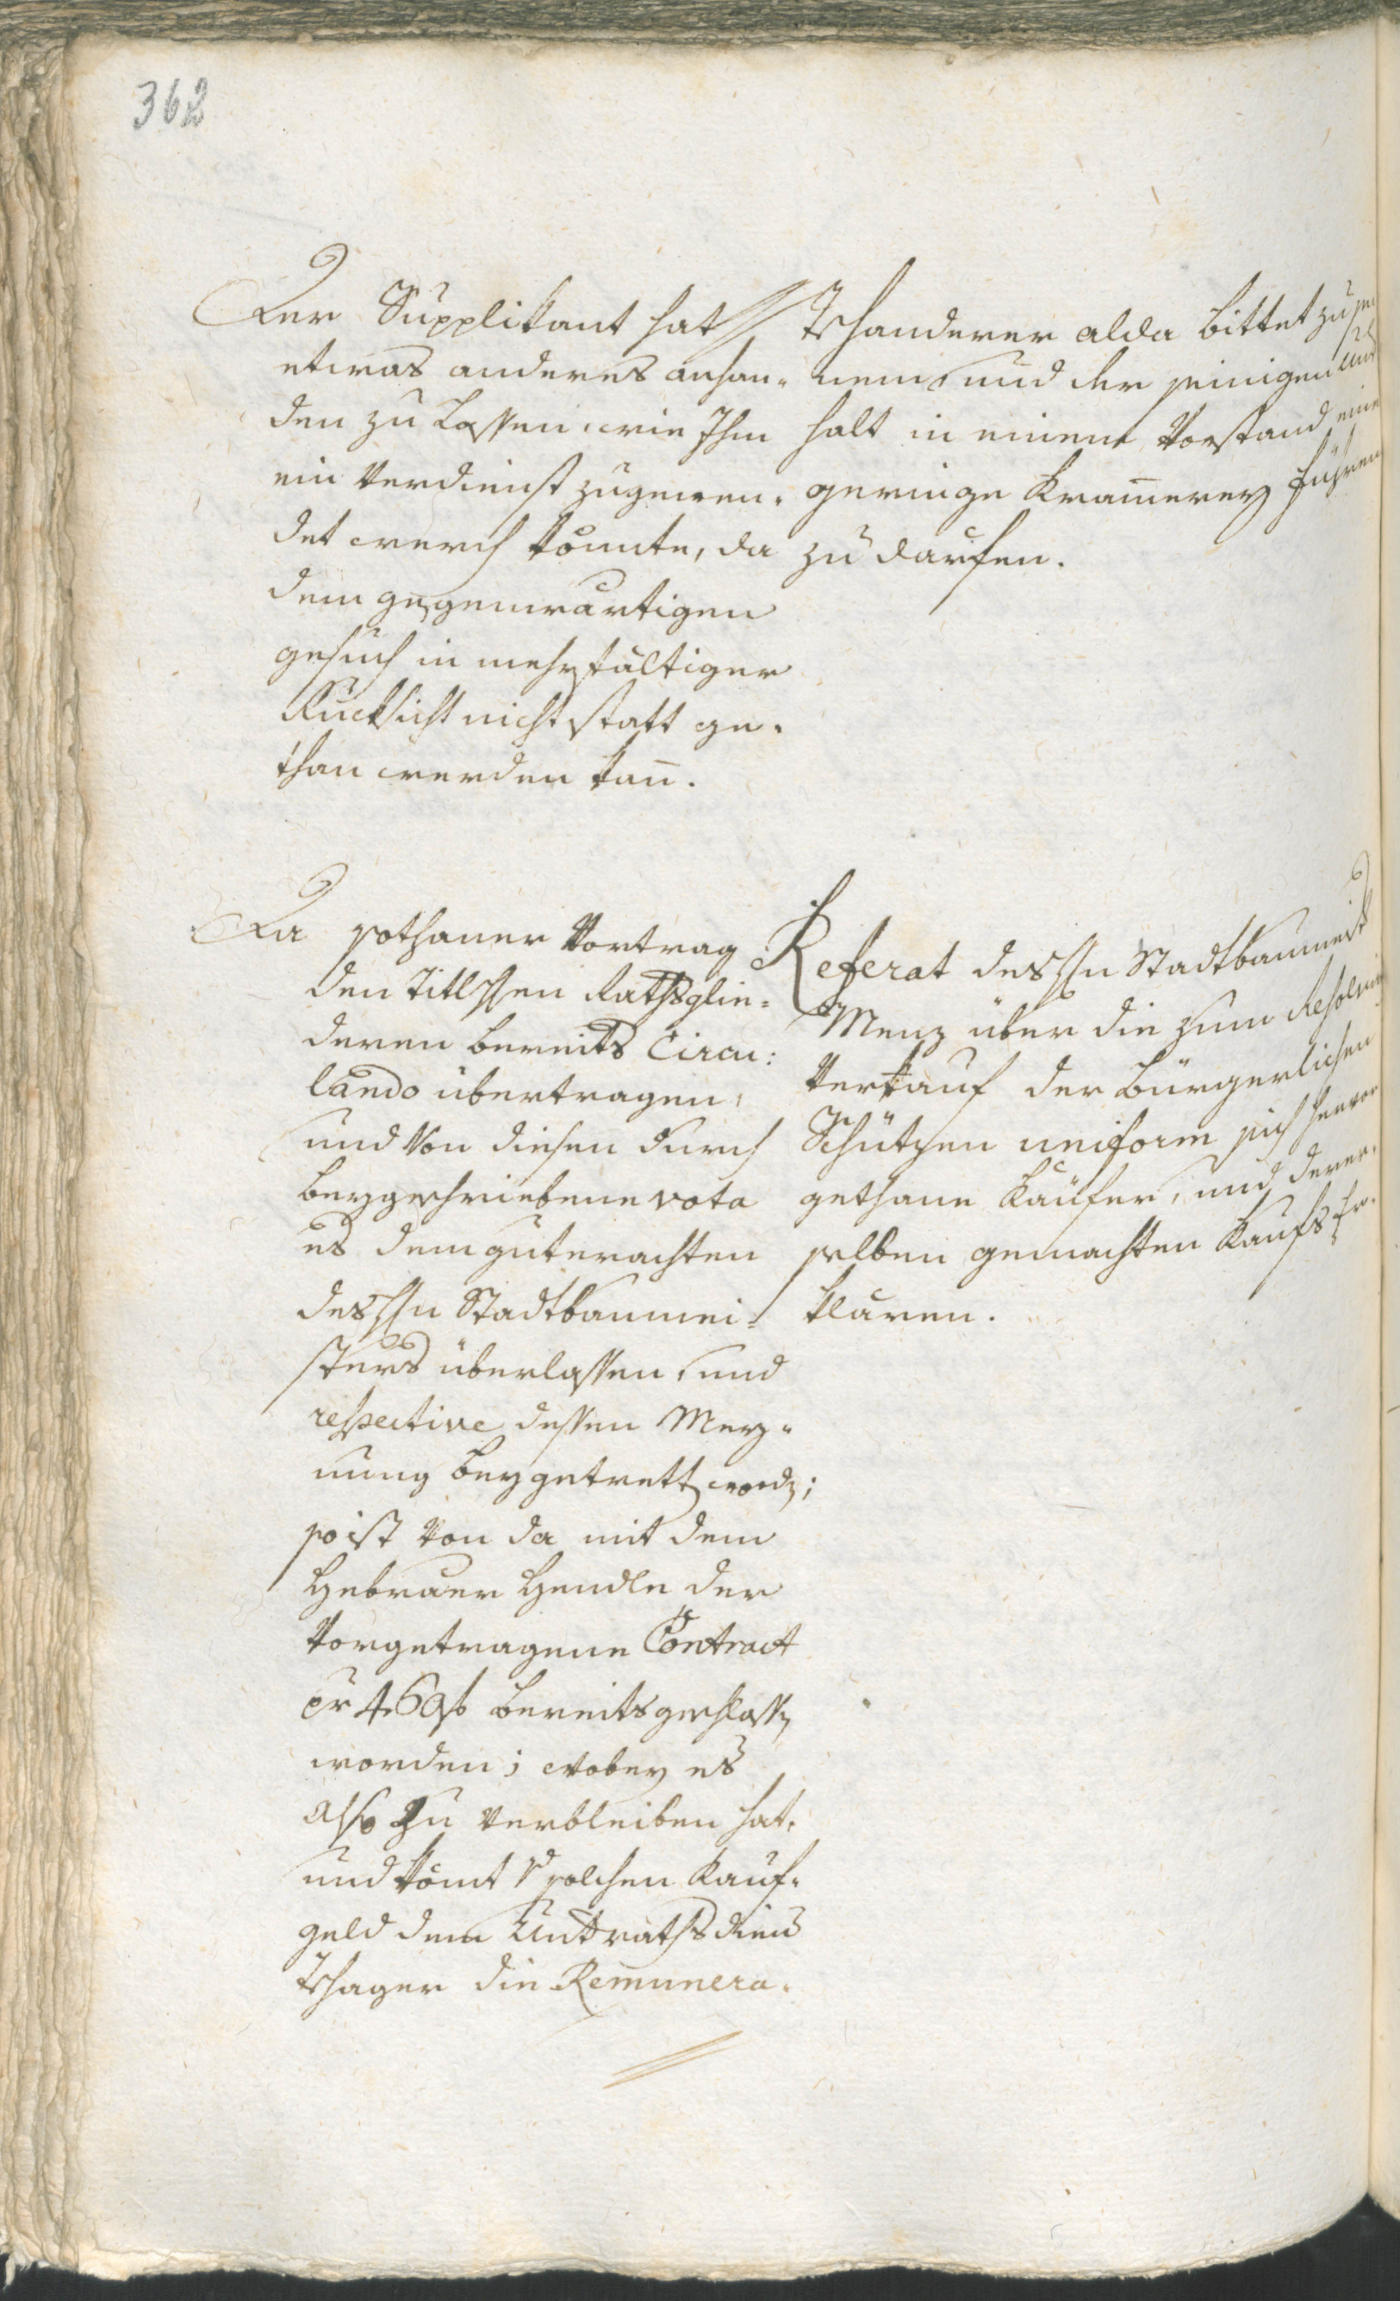 362
Der Supplikant hat
etwas anderes anhan-
den zu Lassen, wie Ihm
ein Verdienst zugewen-
det werd könnte, da
dem gegenwärtigen
gesuch in mehrfältiger
Rücksicht nicht statt ge-
than werden kan̄.
Tschanderer alda bittet zu
nem und der seinigen
halt in einem Vorstand eine
geringe Kramerey führen
zu därfen.
Da sothaner Vortrag
den Titl Hren Rathsglie-
deren bereits Circu:
lando übertragen,
und Von diesen durch
beygeschriebene vota
es dem guterachten
des Hn Stadtbaumei-
sters überlassen, und
respective dessen Mey-
nung beygetrett word;
so ist Von da mit dem
Hebräer Hendle der
Vorgetragene Contract
pr 460 f bereits geschloss
worden; wobey es
also zu verbleiben hat,
und kömt solchen Kauf-
geld dem Rathsdien
Tschager die Remunera-
Referat des Hn Stadtbaumeist
Menz über die zum
Verkauf der Bürgerlichen
Schützen uniform sich hervor
gethane Käufer, und derer-
selben gemachten Kaufs Er-
klären.